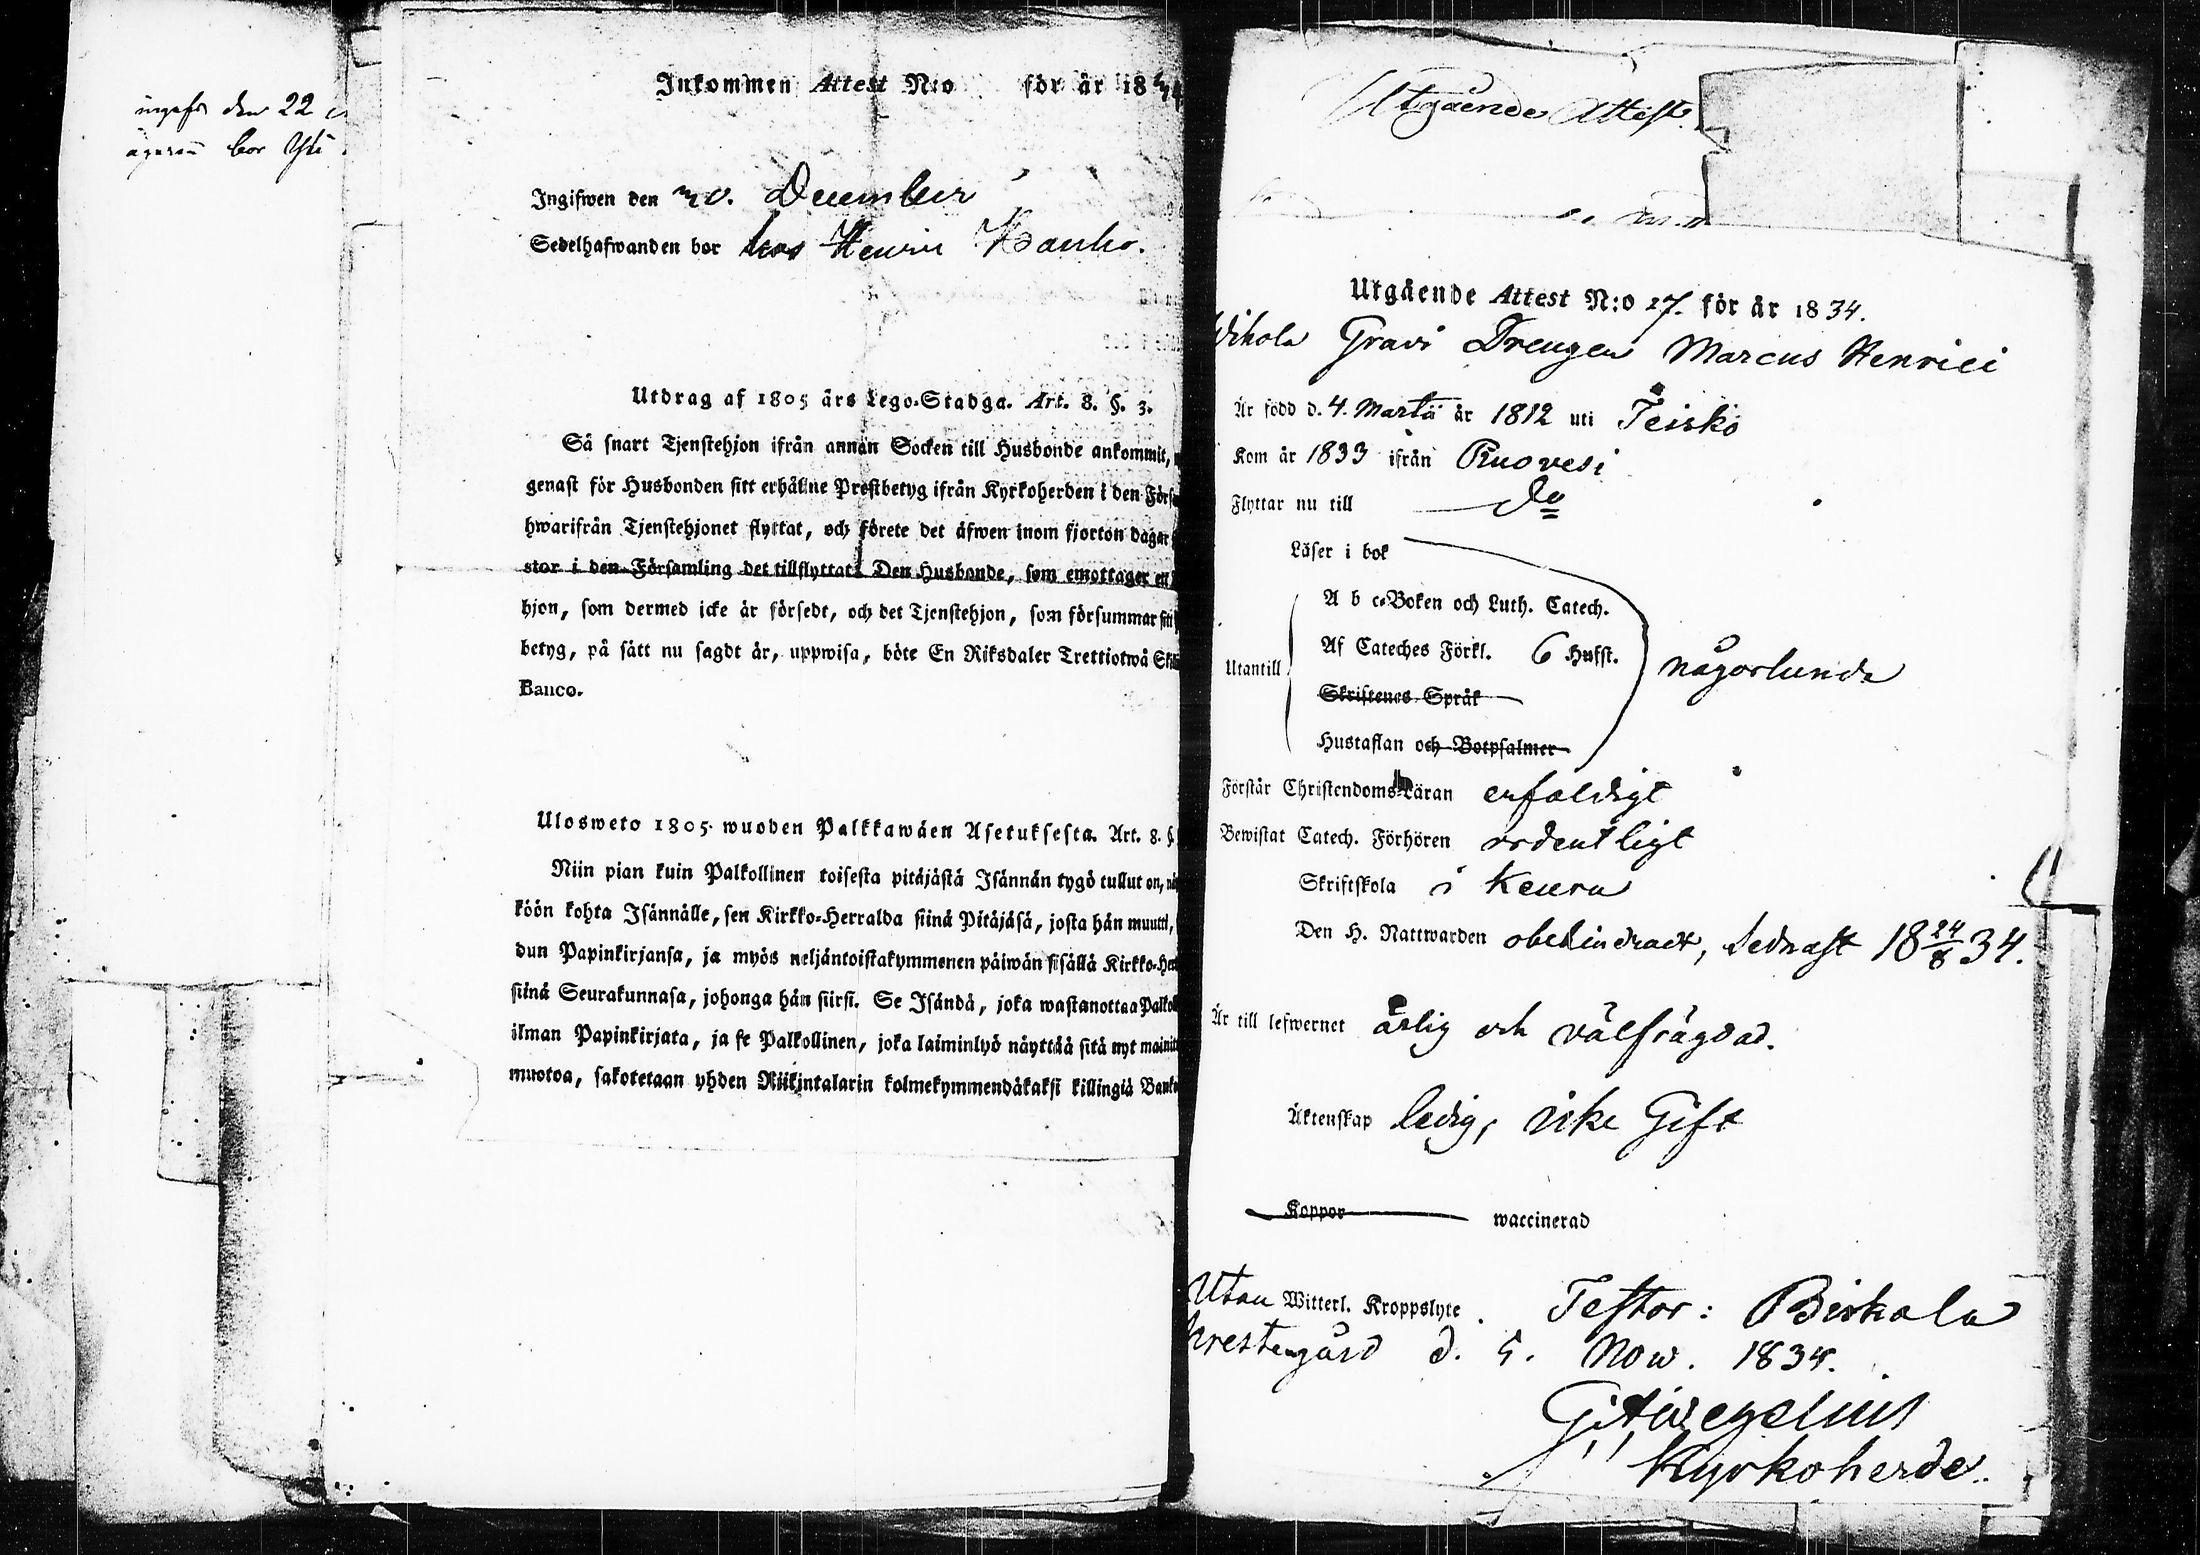 den 22
bor
Inkommen Attest N:o för år 18
Ingifwen den 20. December
Sedelhafwanden bor hos Henric Kauko.
Utdrag af 1805 års Lego-Stadga. Art. 8. §. 3.
Så snart Tjenstehjon ifrån annan Socken till Husbonde ankommit,
genast för Husbonden sitt erhållne Prestbetyg ifrån Kyrkoherden i den
hwarifrån Tjenstehjonet flyttat, och förete det äfwen inom fjorton dagar
stor i den Församling det tillflyttat. Den Husbonde, som emottager ett
hjon, som dermed icke är försedt, och det Tjenstehjon, som försummar sitt
betyg, på sätt nu sagdt är, uppwisa, böte En Riksdaler Trettiotwå
Banco.
Ulosweto 1805 wuoden Palkkawäen Asetuksesta. Art. 8. §.
Niin pian kuin Palkollinen toisesta pitäjästä Isännän tygö tullut on,
köön kohta Isännälle, sen Kirkko-Herralda siinä Pitäjäsä, josta hän muutti,
dun Papinkirjansa, ja myös neljäntoistakymmenen päiwän sisällä
siinä Seurakunnasa, johonga hän siirsi. Se Isändä, joka wastanottaa
ilman Papinkirjata, ja se Palkollinen, joka laiminlyö näyttää sitä nyt
muotoa, sakotetaan yhden Riikintalarin kolmekymmendäkaksi killingiä
Utgående Attest.
Utgående Attest N:o 17. för år 1834.
Drengen Marcus Henrici
Är född d. 4. Martii år 1812 uti Teisko
Kom år 1833 ifrån Ruovesi
Flyttar nu till do
Läser i bok
A b c-Boken och Luth. Catech.
Af Cateches Förkl. 6 Hufst.
Utantill någorlunda
Skriftenes Språk
Hustaflan och Botpsalmer
Förstår Christendoms-Läran enfaldigt
Bewistat Catech. Förhören ordentligt
Skriftskola i Keuru
Den H. Nattwarden obehindradt, sednast 18 24/8 34.
Är till lefwernet ärlig och välfrägdad.
Äktenskap ledig, icke Gift
Koppor waccinerad
Utan Witterl. Kroppslyte. Testor:
Prestengård d. 5. Now. 1834.
Kyrkoherde.